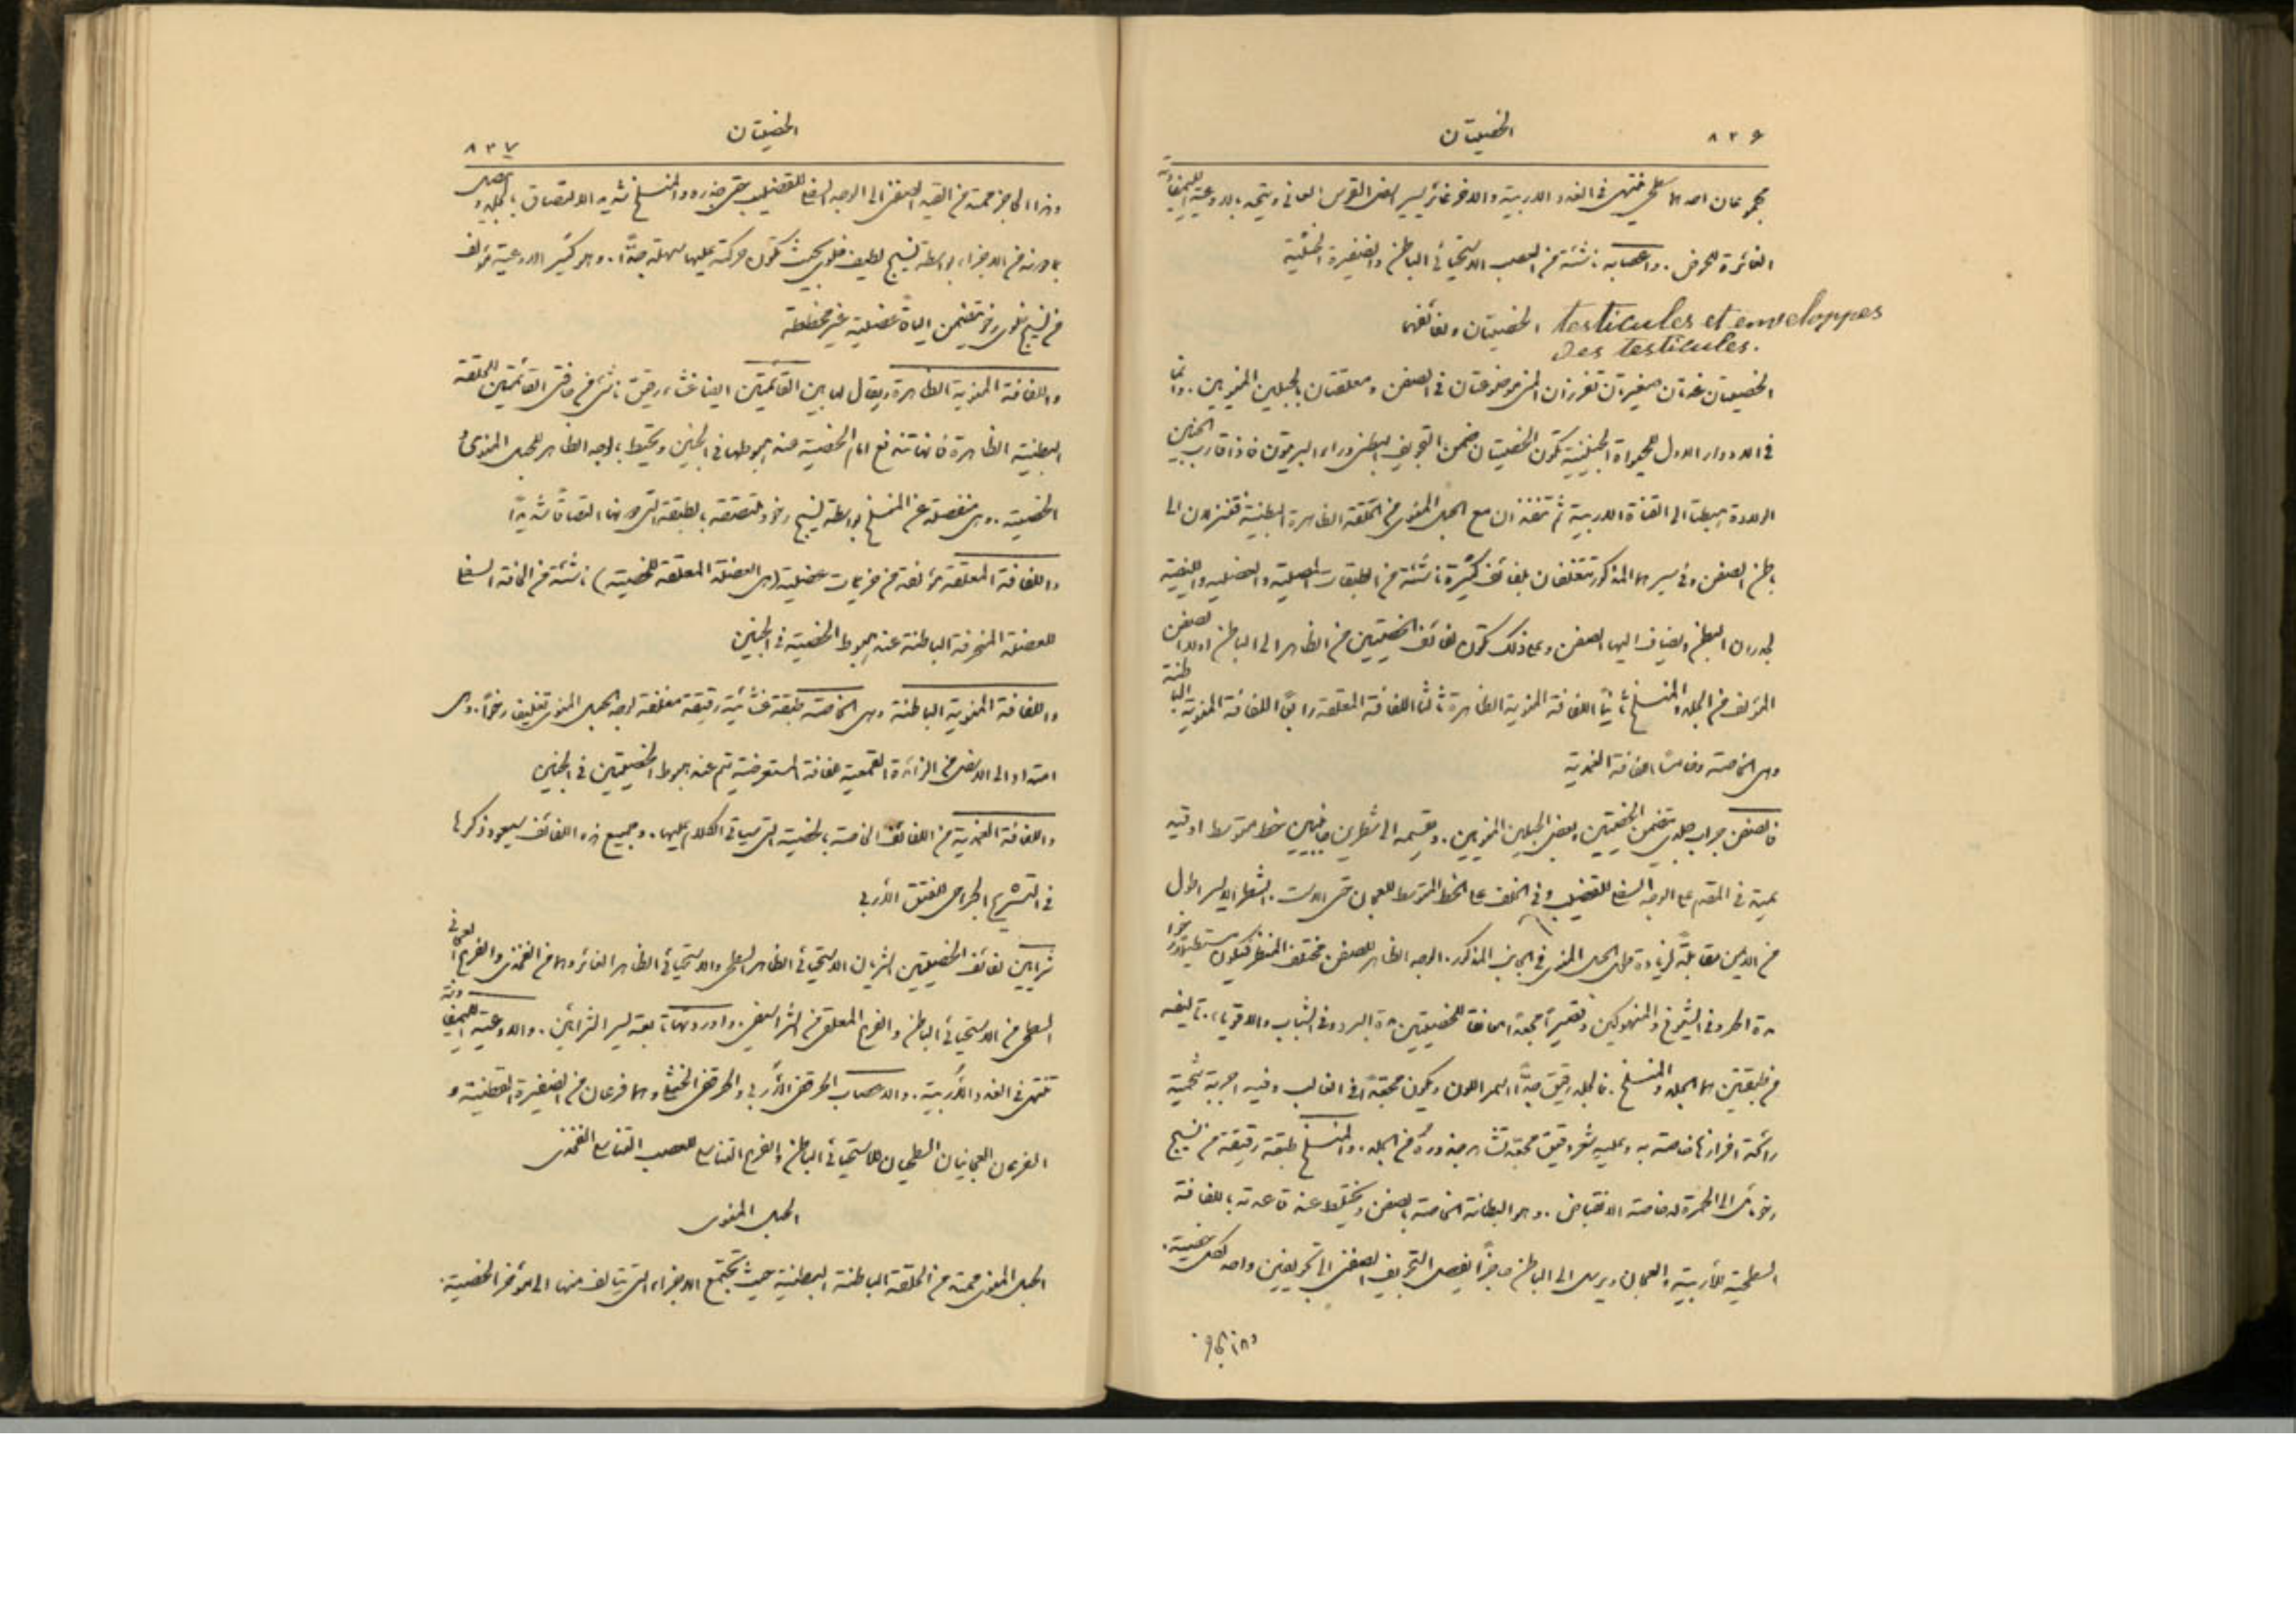 ٨٣٦
الخصيتان
مجموعان احدهما سطحي فتنتهي في الغدد الاربية والاخر غائر يسير اسفل القوس العاني ويتحد بالاوعية اللمفائية
الغائرة للحوض. واعصابه ناشئة من العصب الاستحيائي الباطن والضفيرة الخثلية
الخصيتان ولفائفهما testicules et enveloppes
des testicules.
الخصيتان غدتان صغيرتان تفرزان المني موضوعتان في الصفن ومعلقتان بالحبلين المنويين. واما
في الادوار الاول للحيواة الجنينية تكون الخصيتان ضمن التجويف البطني وراء البريتون فاذا قارب الجنين
الولادة هبطتا الى القناة الاربية ثم تنفذان مع الحبل المنوي من الحلقة الظاهرة البطنية فتنزلان الى
باطن الصفن وفي سيرهما المذكور تتغلفان بلفائف كثيرة ناشئة من الطبقات المصلية والعضلية والليفية
لجدران البطن ويضاف اليها الصفن وعلى ذلك تكون لفائف الخصيتين من الظاهر الى الباطن اولا الصفن
المؤلف من الجلد والمنسلخ ثانياً اللفافة المنوية الظاهرة ثالثا اللفافة المعلقة رابعاً اللفافة المنوية الباطنة
وهي الخاصة وخامسا اللفافة الغمدية
فالصفن جراب جلدي يتضمن الخصيتين وبعض الحبلين المنويين. ويقسمه الى شطرين جانبيين خط متوسط
يمتد في المقدم على الوجه السفلي للقضيب وفي الخلف على الخط المتوسط للعجان حتى الاست. الشطر الايسر اطول
من الايمن مقابلة لزيادة طول الحبل المنوي في الجانب المذكور. الوجه الظاهر للصفن مختلف المنظر فيكون مستطيلا رخوا
مدة الحر وفي الشيوخ والمنهوكين وقصيرا مجعدا معانقا للخصيتين مدة البرد وفي الشباب والاقوياء. تاليفه
من طبقتين هما الجلد والمنسلخ. فالجلد رقيق جدًّا اسمر اللون ويكون مجعدًا في الغالب وفيه اجربة شحمية
رائحة افرازها خاصة به وعليه شعر دقيق مجعد تشاهد جذوره من الجلد. والمنسلخ طبقة رقيقة من نسيج
رخو مائل الى الحمرة له خاصة الانقباض. وهو البطانة الخاصة بالصفن ويختلط عند قاعدته باللفافة
السطحية للأربية والعجان ويرسل الى الباطن حاجزاً يفصل التجويف الصفني الى تجويفين واحد لكل خصية.
وهذا الحاجز
٨٣٧
الخصيتان
وهذا الحاجز ممتد من القيد الصفني الى الوجه السفلي للقضيب حتى جذره والمنسلخ شديد الالتصاق بالجلد
يجاوره من الاجزاء بواسطة نسيج لطيف خلوي بحيث تكون حركته عليها سهلة جدًّا. وهو كثير الاوعية مؤلف
من نسيج خلوي رخو يتضمن اليافاً عضلية غير مخططة
واللفافة المنوية الظاهرة ويقال لها بين القائمتين ايضا غشاء رقيق ناشئ من حافتي القائمتين للحلقة
البطنية الظاهرة فانها تندفع امام الخصية عند هبوطها في الجنين وتحيط بالوجه الظاهر للحبل المنوي و
الخصية. وهي منفصلة عن المنسلخ بواسطة نسيج رخو وملتصقة بالطبقة التي دونها التصاقاً شديداً
واللفافة المعلقة مؤلفة من حزيمات عضلية (هي العضلة المعلقة للخصية) ناشئة من الحافة السفلى
للعضلة المنحرفة الباطنة عند هبوط الخصية في الجنين
واللفافة المنوية الباطنة وهي الخاصة طبقة غشائية رقيقة مغلفة لوجه الحبل المنوي تغليفا رخواً. وهي
امتداد الى الاسفل من الزائدة القمعية للفافة المستعرضية يتم عند هبوط الخصيتين في الجنين
واللفافة الغمدية من اللفائف الخاصة بالخصية التي سياتي الكلام عليها. وجميع هذه اللفائف سيعود ذكرها
في التشريح الجراحي للفتق الأربي
شرايين لفائف الخصيتين الشريان الاستحيائي الظاهر السطحي والاستحيائي الظاهر الغائر وهما من الفخذي والفرع العجاني
السطحي من الاستحيائي الباطن والفرع المعلق من الشراسيفي. واوردتها تابعة لسير الشرايين. والاوعية اللمفاوية
تنتهي في الغدد الأُربية. والاعصاب الحرقفي الأُربي والحرقفي الخثلي وهما فرعان من الضفيرة القطنية و
الفرعان العجانيان السطحيان للاستحيائي الباطن والفرع التناسلي للعصب التناسلي الفخذي
الحبل المنوي
الحبل المنوي ممتد من الحلقة الباطنة البطنية حيث تجتمع الاجزاء التي يتالف منها الى مؤخر الخصية.